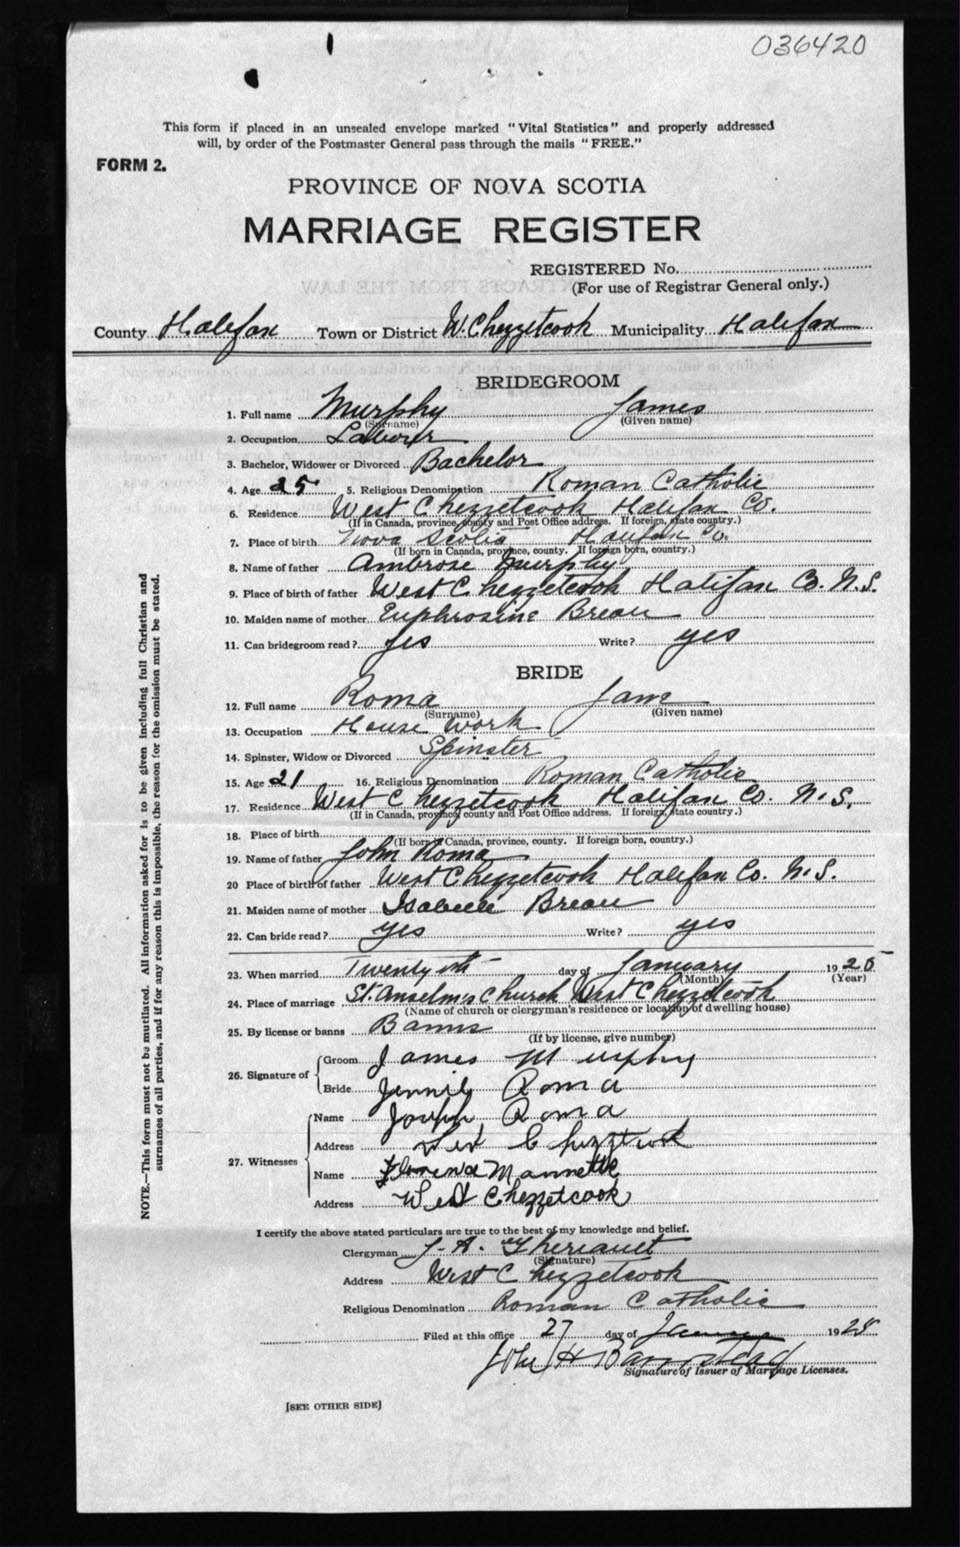 036420
This form if placed in an unsealed envelope marked "Vital Statistics" and properly addressed
will, by order of the Postmaster General pass through the mails "FREE."
FORM 2.
PROVINCE OF NOVA SCOTIA
MARRIAGE REGISTER
REGISTERED No.
(For use of Registrar General only.)
County Halifax Town or District W. Chezzetcook Municipality Halifax
BRIDEGROOM
1. Full name Murphy James
(Surname) (Given name)
2. Occupation Laborer
3. Bachelor, Widower or Divorced Bachelor
4. Age 25 5. Religious Denomination Roman Catholic
6. Residence West Chezzetcook Halifax Co.
(If in Canada, province, county and Post Office address. If foreign, state country.)
7. Place of birth Nova Scotia Halifax Co.
(If born in Canada, province, county. If foreign born, country.)
8. Name of father Ambrose Murphy
9. Place of birth of father West Chezzetcook Halifax Co. N.S.
10. Maiden name of mother Euphrosine Breau
11. Can bridegroom read? yes Write? yes
BRIDE
12. Full name Roma Jane
(Surname) (Given name)
13. Occupation House Work
14. Spinster, Widow or Divorced Spinster
15. Age 21 16. Religious Denomination Roman Catholic
17. Residence West Chezzetcook Halifax Co. N.S.
(If in Canada, province, county and Post Office address. If foreign, state country.)
18. Place of birth
(If born in Canada, province, county. If foreign born, country.)
19. Name of father John Roma
20 Place of birth of father West Chezzetcook Halifax Co. N.S.
21. Maiden name of mother Isabelle Breau
22. Can bride read? yes Write? yes
23. When married day of January 1925
(Month) (Year)
24. Place of marriage St. Anselms Church West Chezzetcook
(Name of church or clergyman's residence or location of dwelling house)
25. By license or banns Banns
(If by license, give number)
26. Signature of Groom James Murphy
Bride Jennie Roma
27. Witnesses Name Joseph Roma
Address West Chezzetcook
Name Mannette
Address West Chezzetcook
I certify the above stated particulars are true to the best of my knowledge and belief.
Clergyman J. A. Theriault
(Signature)
Address West Chezzetcook
Religious Denomination Roman Catholic
Filed at this office 27 day of January 1925
John H Barnstead
Signature of Issuer of Marriage Licenses.
[SEE OTHER SIDE]
NOTE.—This form must not be mutilated. All information asked for is to be given including full Christian and
surnames of all parties, and if for any reason this is impossible, the reason for the omission must be stated.